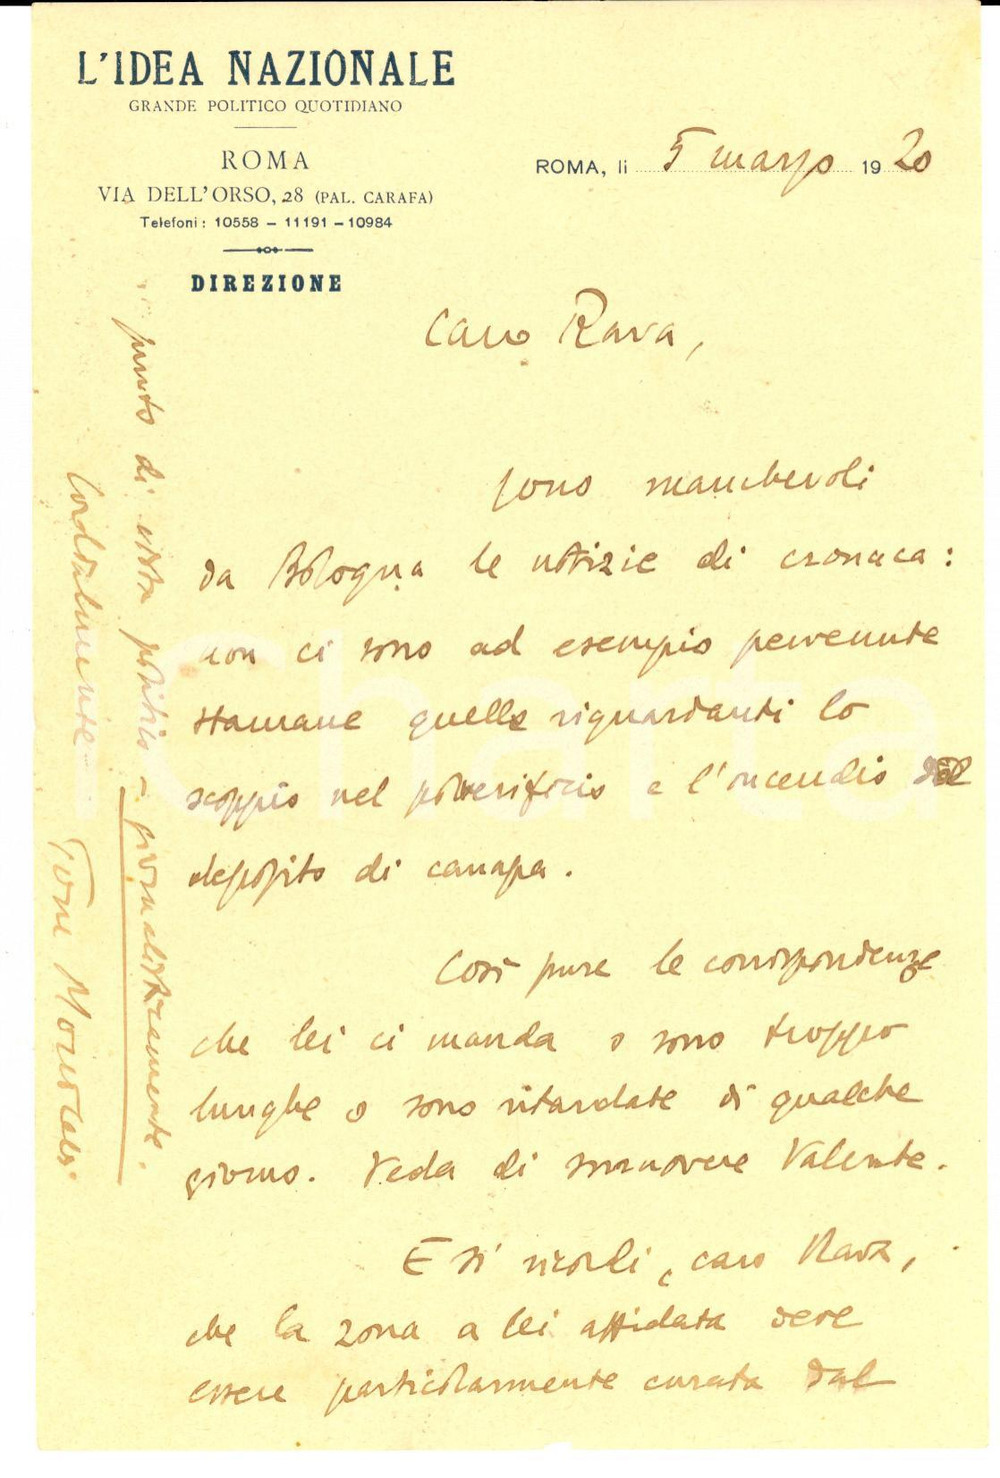 L'IDEA NAZIONALE
GRANDE POLITICO QUOTIDIANO
ROMA
VIA DELL'ORSO, 28 (PAL. CARAFA)
Telefoni: 10558 - 11191 - 10984
DIREZIONE
ROMA, li 5 marzo 1920
Caro Rava,
sono manchevoli
da Bologna le notizie di cronaca:
non ci sono ad esempio pervenute
stamane quelle riguardanti lo
scoppio nel polverificio e l'incendio del
deposito di canapa.
Così pure le corrispondenze
che lei ci manda o sono troppo
lunghe o sono ritardate di qualche
giorno. Veda di smuovere Valente.
E si ricordi, caro Rava,
che la zona a lei affidata deve
essere particolarmente curata dal
punto di vista politico - giornalisticamente.
Cordialmente